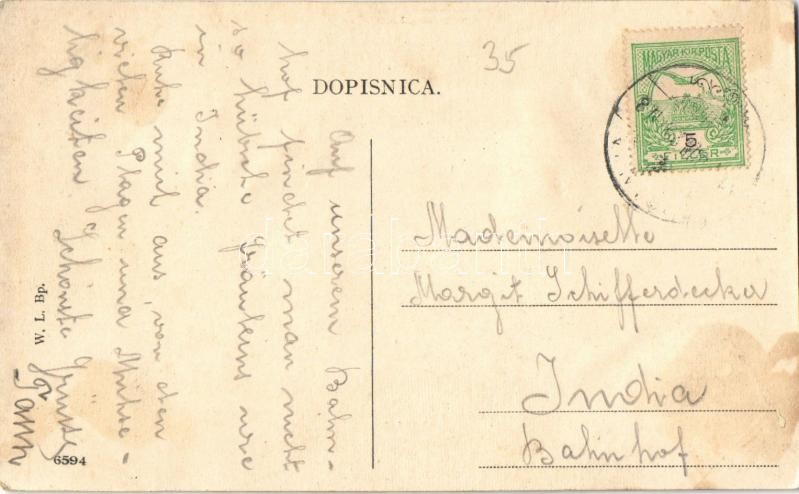 35
DOPISNICA.
MAGYAR KIR. POSTA
5
FILLÉR
Auf unserem Bahn-
hof findet man nicht
so hübsche Fräuleins wie
in India.
Ruhe mich aus, von den
vielen Plagen und Mühse-
ligkeiten. Schönste Grüsse
Mademoiselle
Margit Schifferdecker
India
Bahnhof
W. L. Bp.
6594